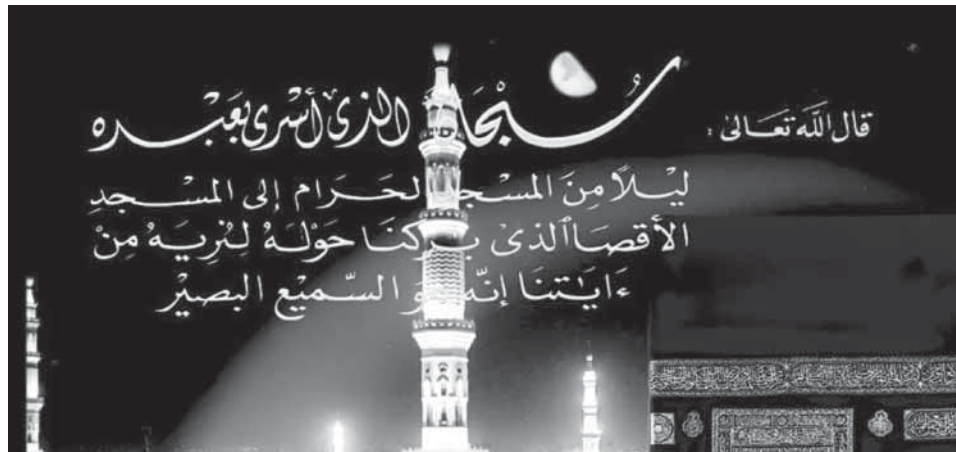 قال اللَّه تَعَالىٰ :
سُبْحَا الذى أَسْرى بِعَبْده
ليْلًا مِنَ المَسْجد الحَرَام إلى المَسْجدِ
الأقصَا ٱلذى بٰركنَا حَوْلهُ لِنُريَهُ مِنْ
ءَايَٰتنَا إنّه هو السَّميْع البَصيْر